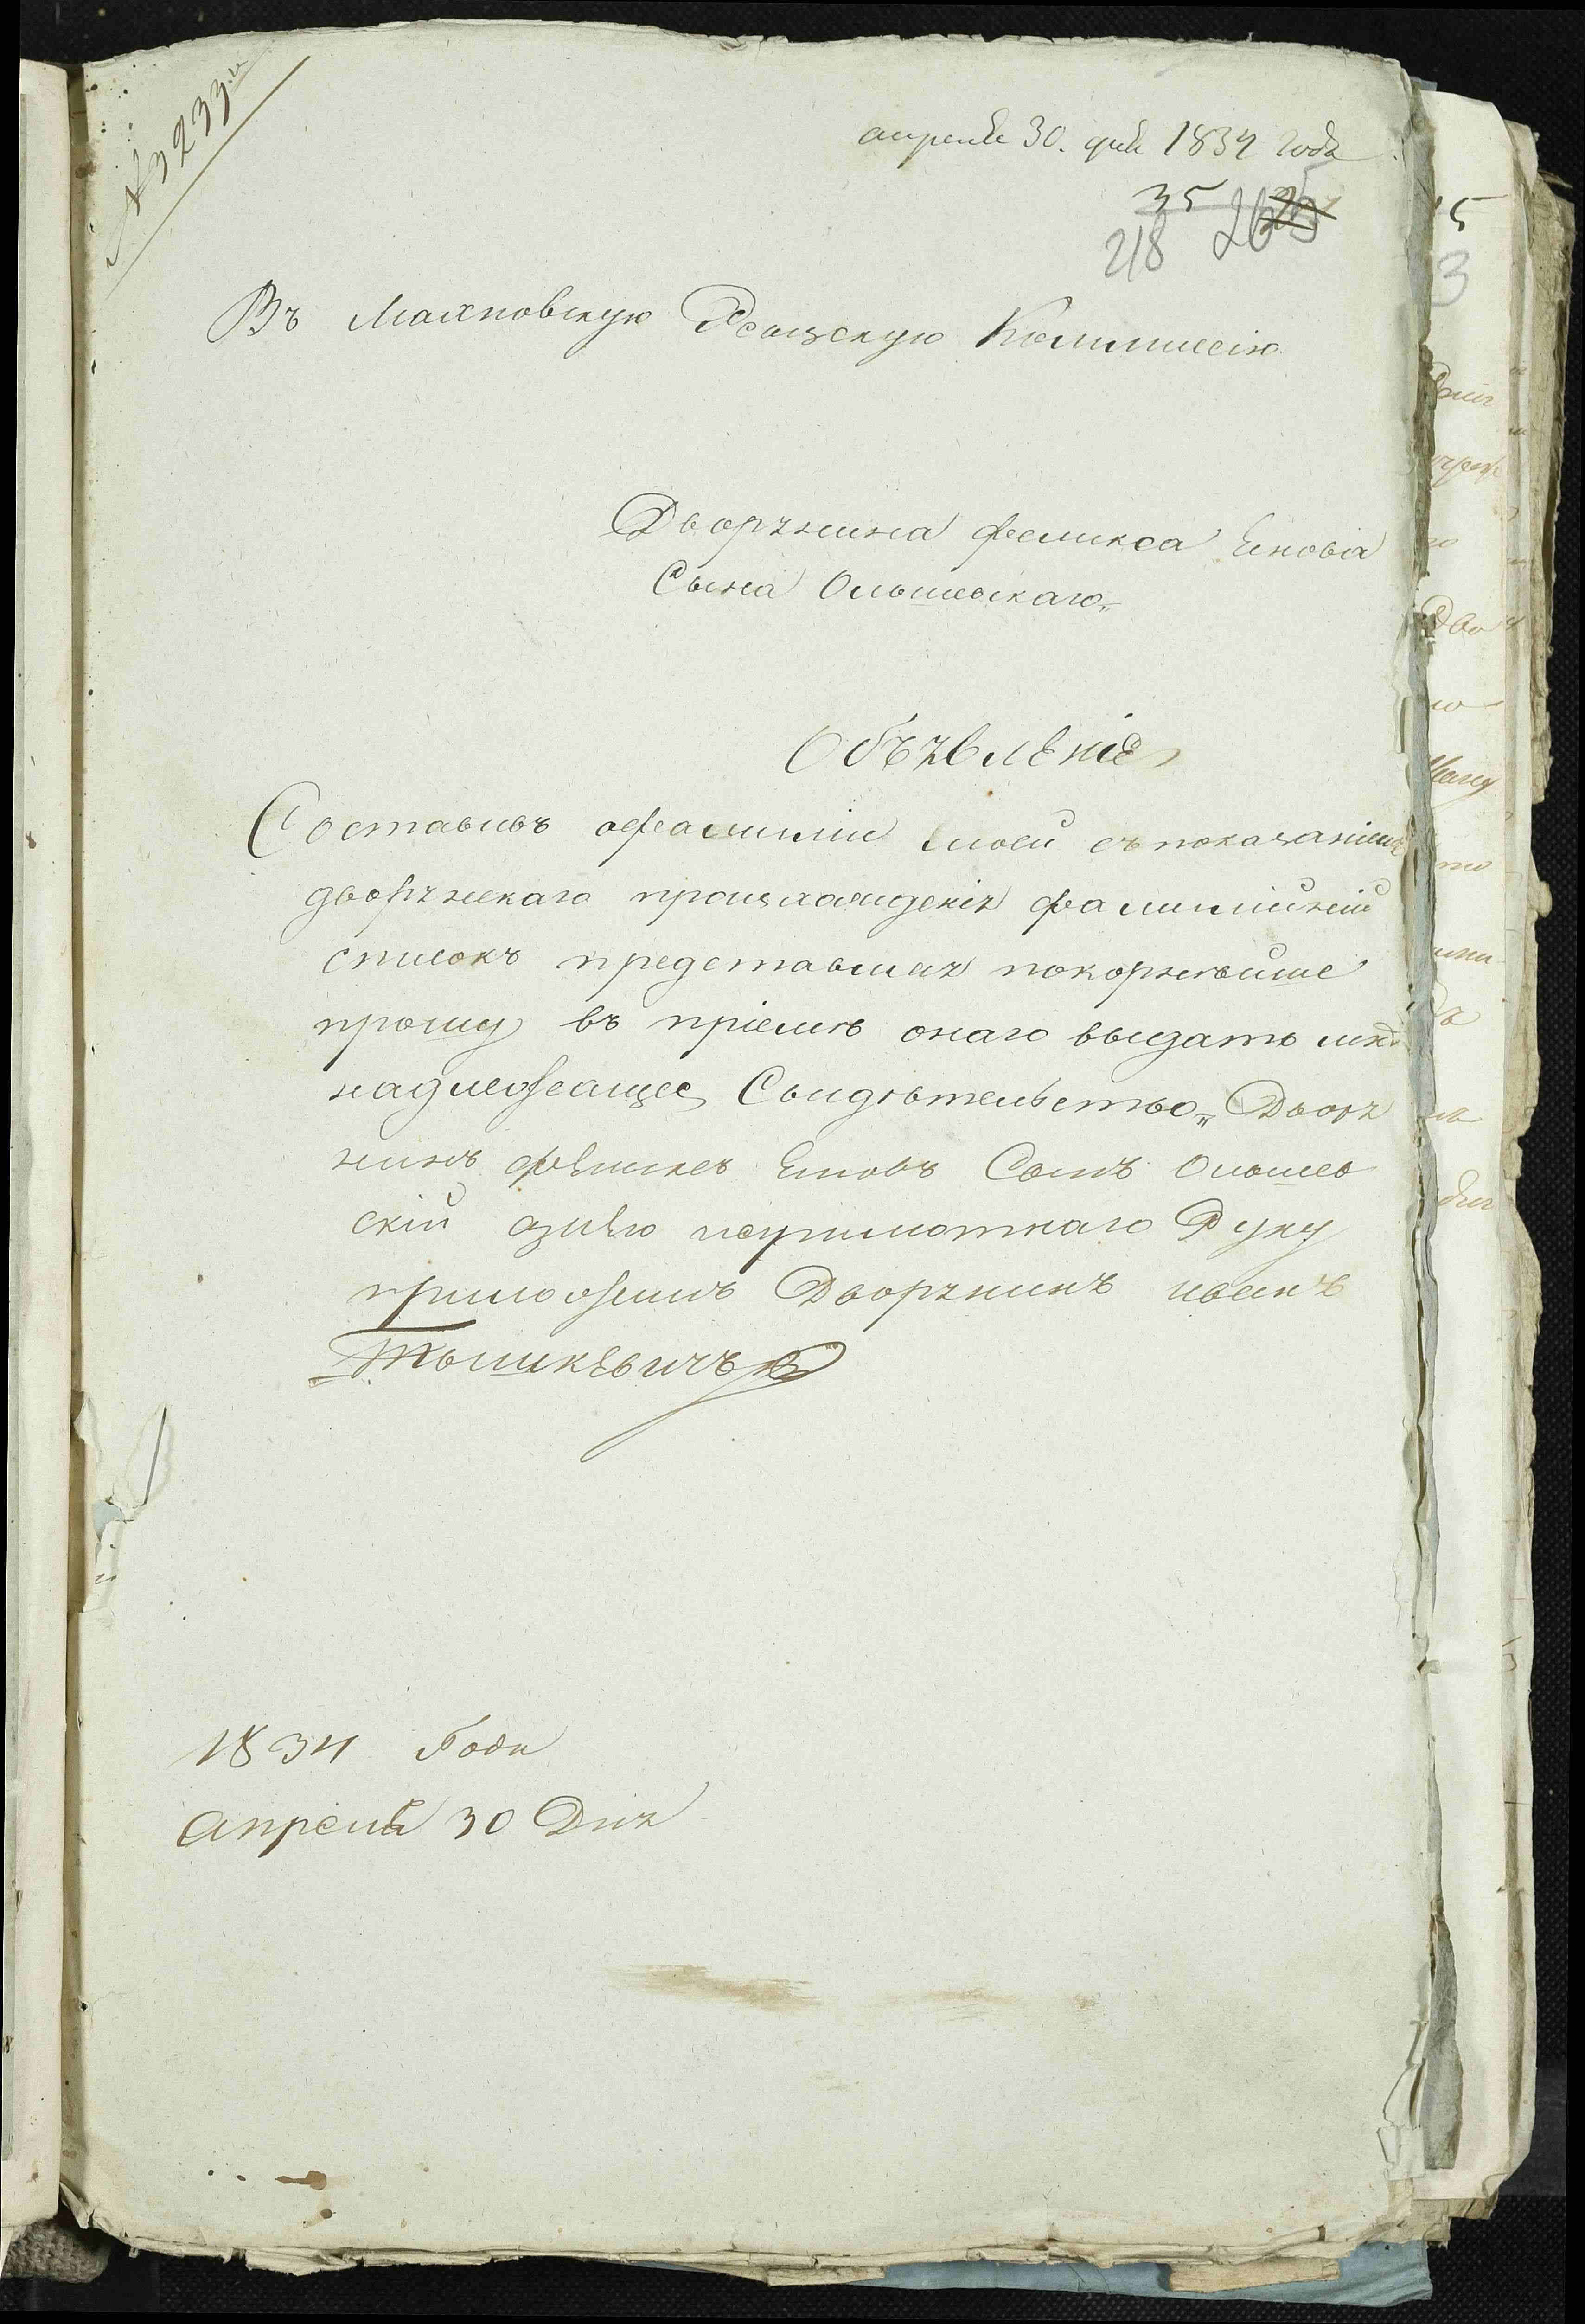 № 3233.
апреля 30. дня 1834 года
35
218 265
Въ Махновскую Ревизскую Коммисію
Дворянина феликса Якова
Сына Ольшевскаго„
Объявленіе
Составивъ офамиліи моей съ показаніемъ
дворянскаго происхожденія фамилійній
списокъ представляя покорнейше
прошу въ пріемѣ онаго выдать мнѣ
надлежащее Свидѣтельство„ Дворя
нинъ феликсъ Яковъ Сынъ Ольшев
скій азанего неграмотнаго Руку
приложилъ Дворянинъ иванъ
Тышкевичъ
1834 Года
Апреля 30 Дня